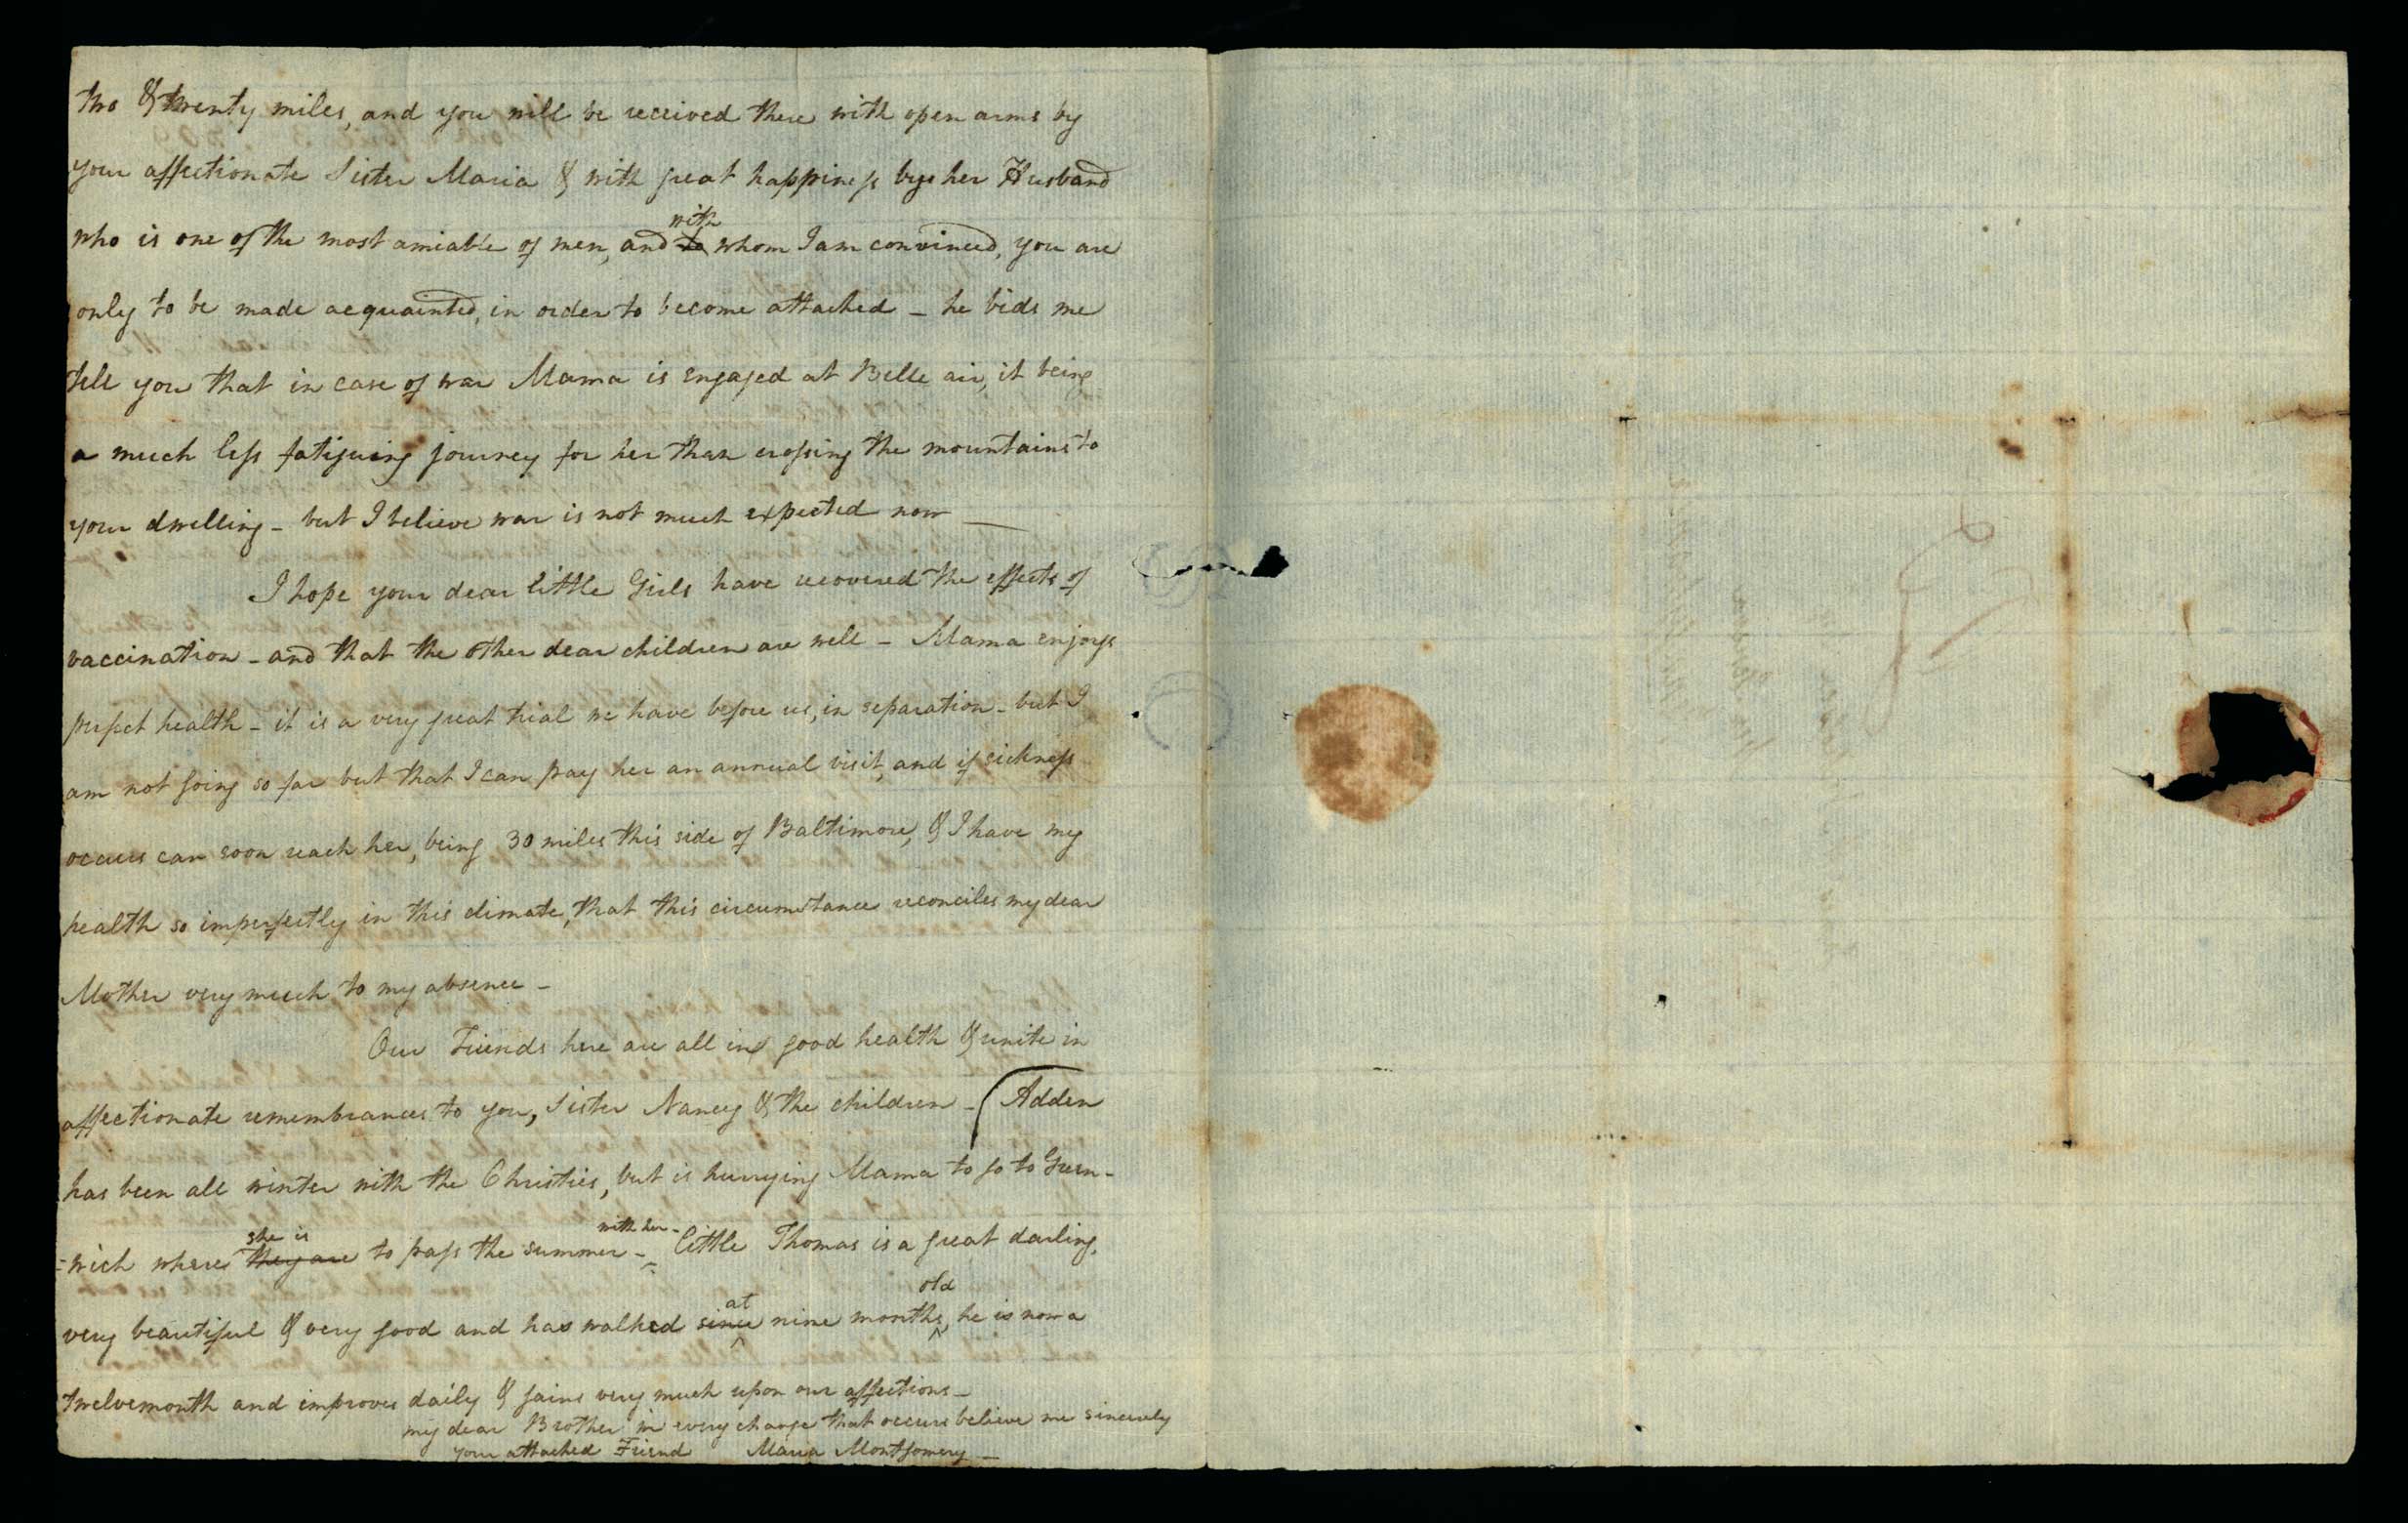 two & twenty miles, and you will be received there with open arms by
your affectionate Sister Maria & with great happiness by her Husband
who is one of the most amiable of men, and to with whom I am convinced, you are
only to be made acquainted, in order to become attached – he bids me
tell you that in case of war Mama is engaged at Belle air, it being
a much less fatiguing journey for her than crossing the mountains to
your dwelling – but I believe war is not much expected now —
I hope your dear little Girls have recovered the effects of
vaccination – and that the other dear children are well – Mama enjoys
perfect health – it is a very great trial we have before us, in separation – but I
am not going so far but that I can pay her an annual visit, and if sickness
occurs can soon reach her, being 30 miles this side of Baltimore, & I have my
health so imperfectly in this climate, that this circumstance reconciles my dear
Mother very much to my absence –
Our Friends here are all in good health & unite in
affectionate remembrances to you, Sister Nancy & the children – ( Adden
has been all winter with the Christies, but is hurrying Mama to go to Green-
-wich where they are she is to pass the summer – with her – little Thomas is a great darling,
very beautiful & very good and has walked since at nine months old, he is now a
twelvemonth and improves daily & gains very much upon our affections –
my dear Brother in every change that occurs believe me sincerely
your attached Friend Maria Montgomery –